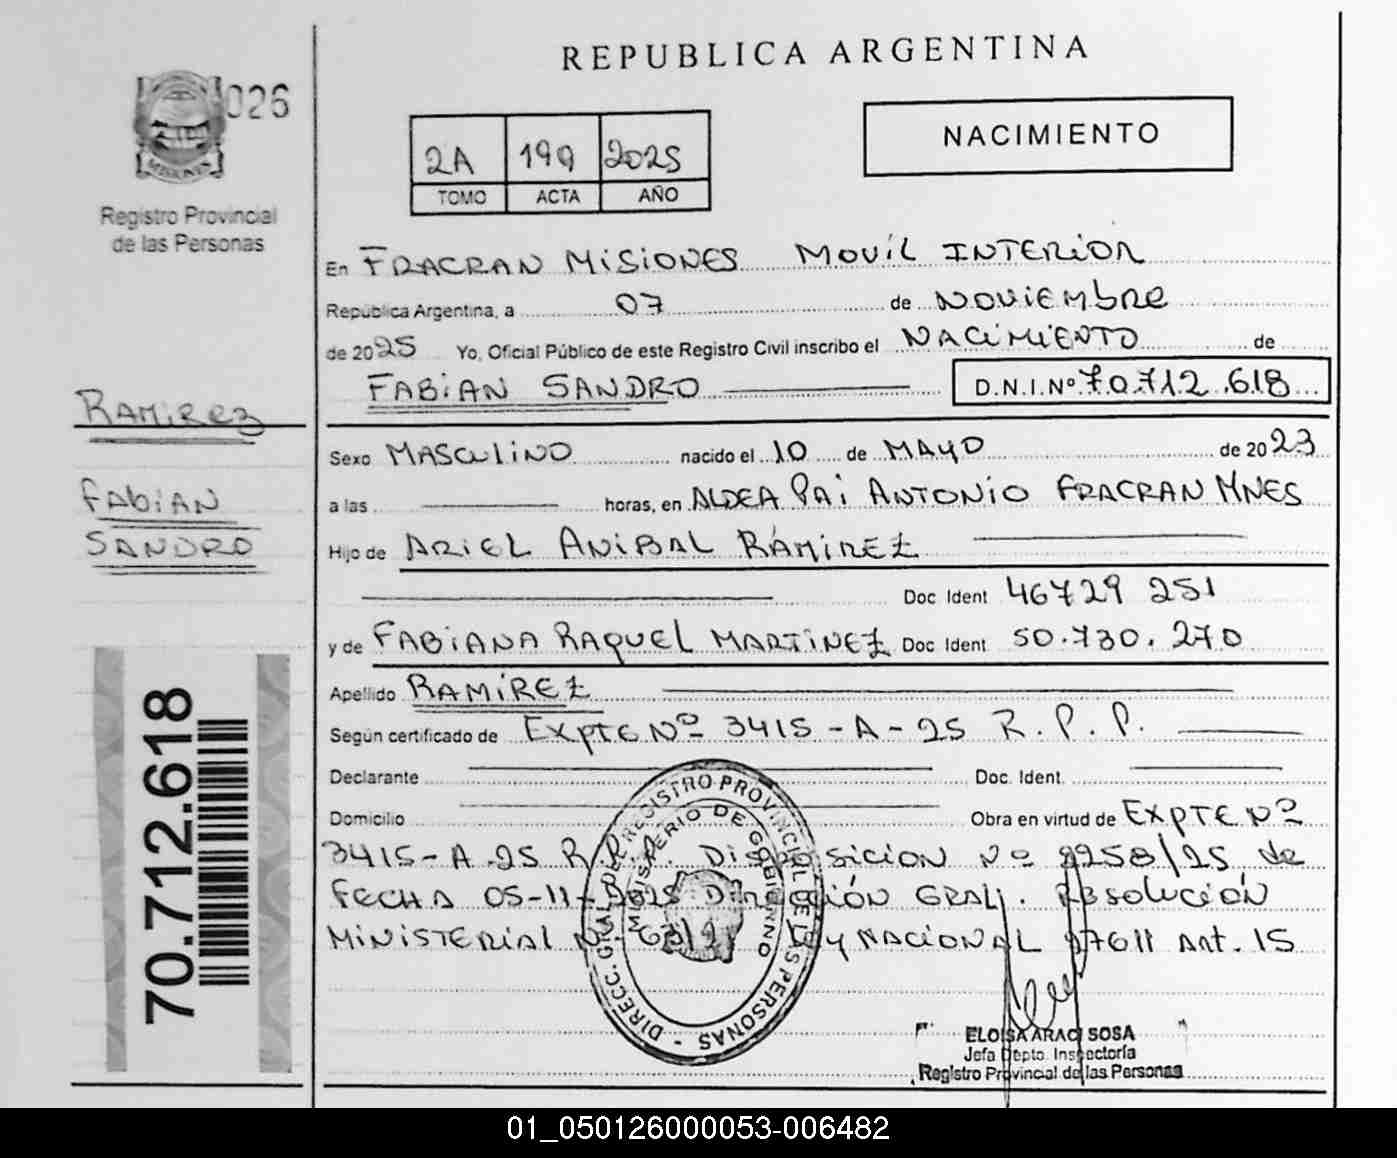 REPUBLICA ARGENTINA
026
MISIONES
Registro Provincial
de las Personas
2A 199 2025
TOMO ACTA AÑO
NACIMIENTO
En FRACRAN MISIONES MOVIL INTERIOR
Republica Argentina, a 07 de NOVIEMBRE
de 2025 Yo, Oficial Público de este Registro Civil inscribo el NACIMIENTO de
FABIAN SANDRO D.N.I.Nº 70.712.618
RAMIREZ
FABIAN
SANDRO
Sexo MASCULINO nacido el 10 de MAYO de 2023
a las horas, en ALDEA PAI ANTONIO FRACRAN MNES
Hijo de ARIEL ANIBAL RAMIREZ
Doc. Ident 46729 251
y de FABIANA RAQUEL MARTINEZ Doc. Ident 50.730.270
Apellido RAMÍREZ
Según certificado de EXPTE Nº 3415-A-25 R.P.P.
Declarante Doc. Ident.
Domicilio Obra en virtud de EXPTE Nº
3415-A-25 R.P.P. DISPOSICION Nº 2258/25 de
FECHA 05-11-2025 DIRECCIÓN GRAL. RESOLUCIÓN
MINISTERIAL LEY NACIONAL 27611 ART. 15
70.712.618
DIRECC. GRAL. DE REGISTRO PROVINCIAL DE LAS PERSONAS -
MINISTERIO DE GOBIERNO
ELOISA ARACI SOSA
Jefa Dpto. Inspectoría
Registro Provincial de las Personas
01_050126000053-006482